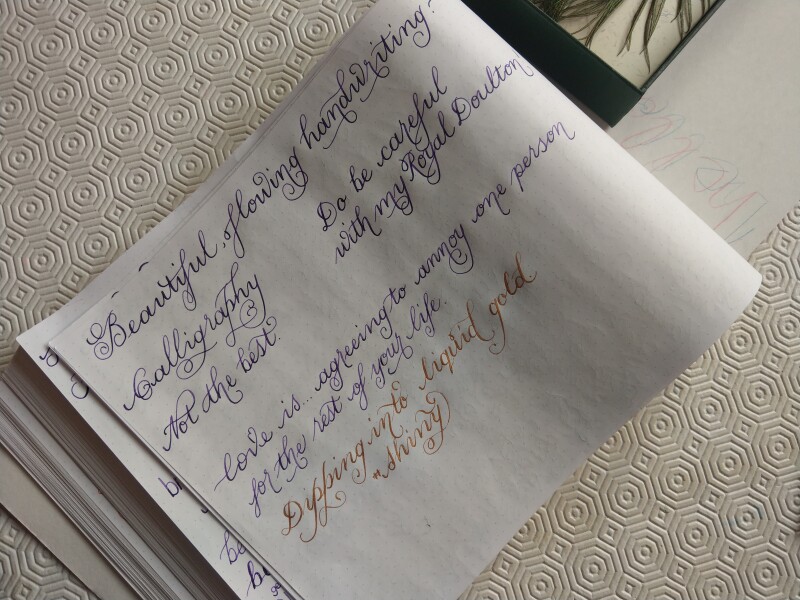 Beautiful, flowing handwriting?
Calligraphy
Not the best.
Do be careful
with my Royal Doulton
Love is... agreeing to annoy one person
for the rest of your life.
Dipping into liquid gold
"shiny